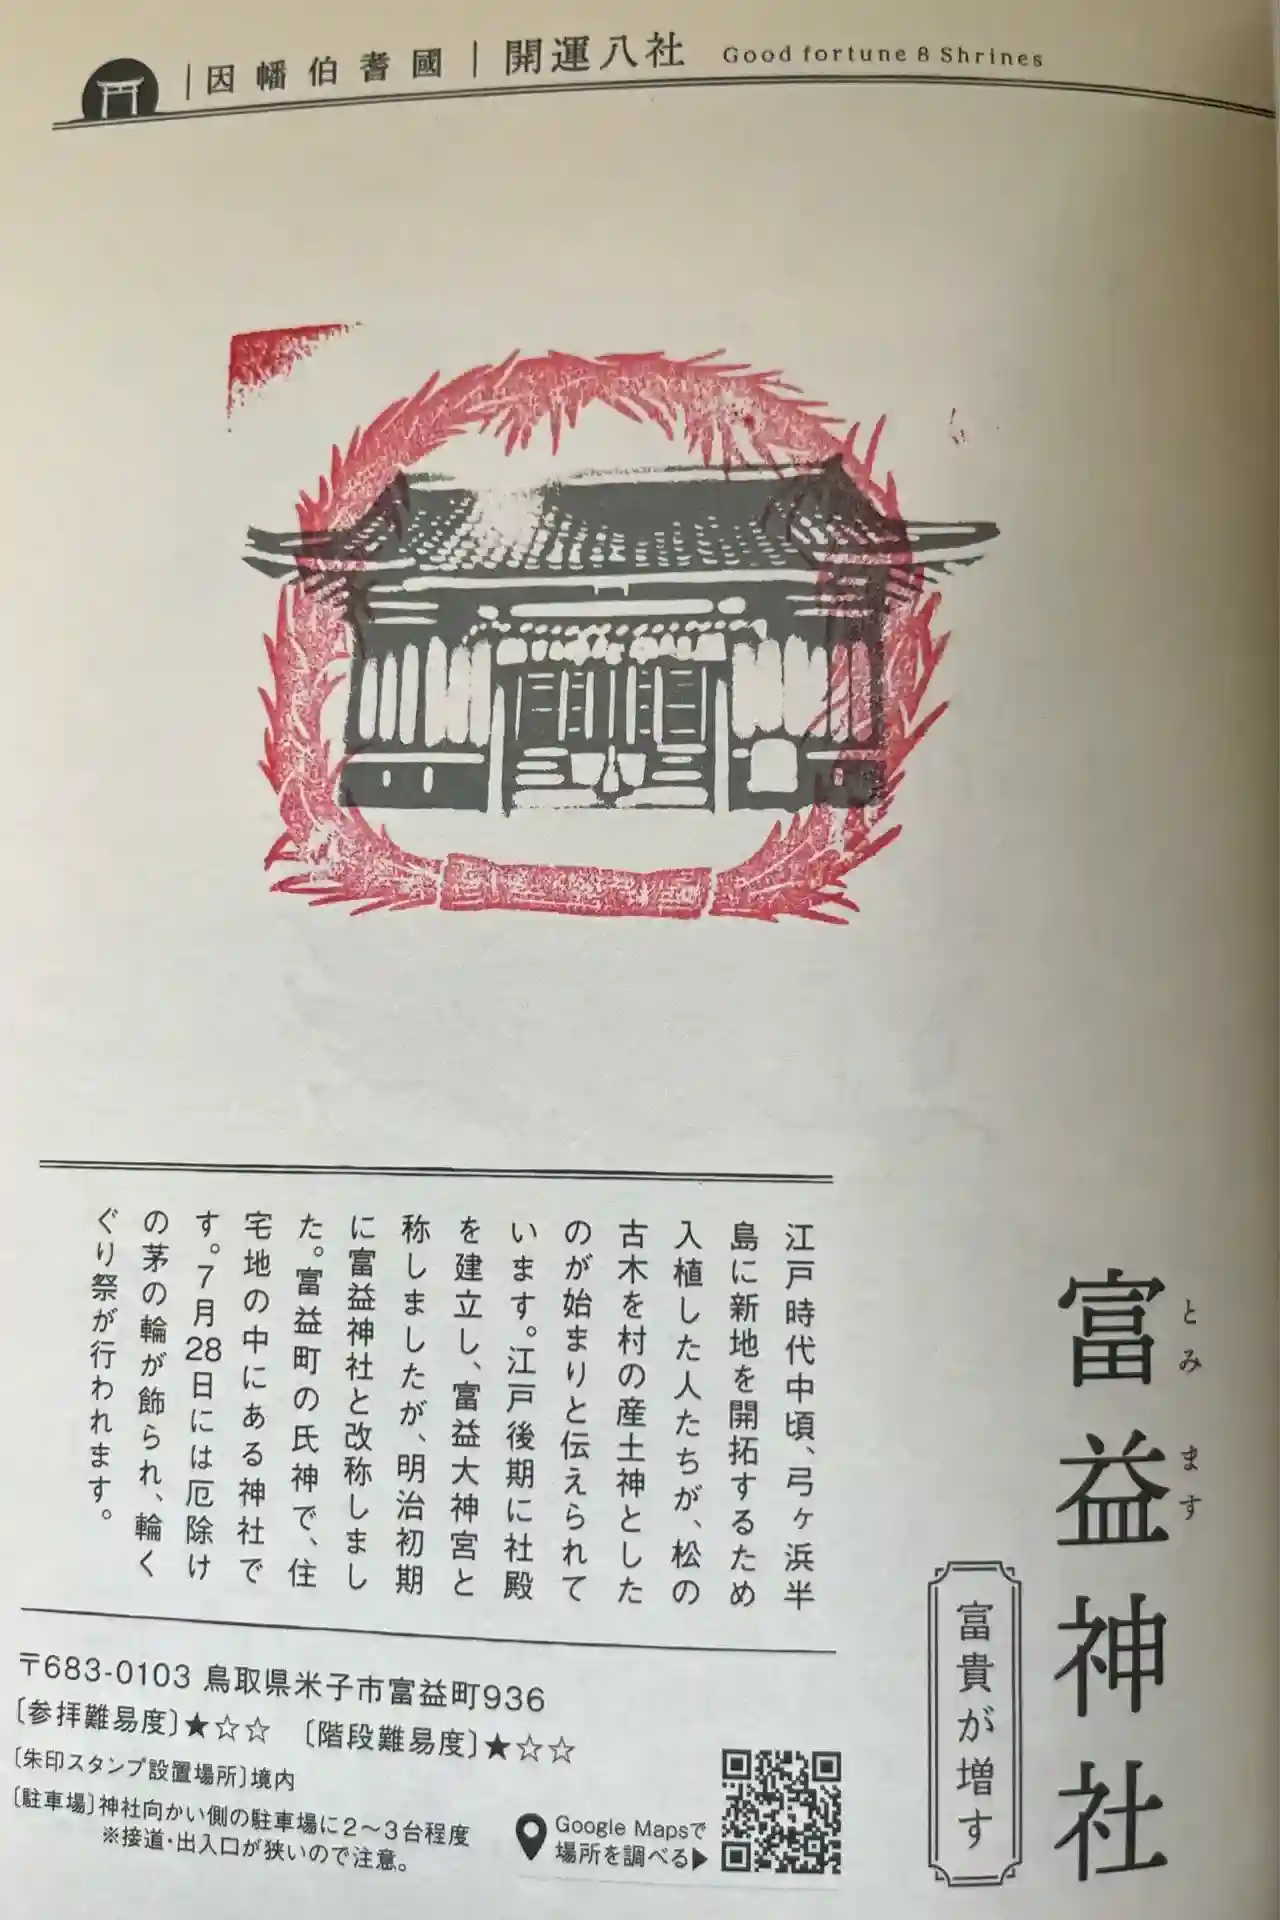 因幡伯耆國 開運八社 Good fortune 8 Shrines
富益神社
とみます
富貴が増す
江戸時代中頃、弓ヶ浜半
島に新地を開拓するため
入植した人たちが、松の
古木を村の産土神とした
のが始まりと伝えられて
います。江戸後期に社殿
を建立し、富益大神宮と
称しましたが、明治初期
に富益神社と改称しまし
た。富益町の氏神で、住
宅地の中にある神社で
す。7月28日には厄除け
の茅の輪が飾られ、輪く
ぐり祭が行われます。
〒683-0103 鳥取県米子市富益町936
〔参拝難易度〕★☆☆ 〔階段難易度〕★☆☆
〔朱印スタンプ設置場所〕境内
〔駐車場〕神社向かい側の駐車場に2〜3台程度
※接道・出入口が狭いので注意。
Google Mapsで
場所を調べる▶